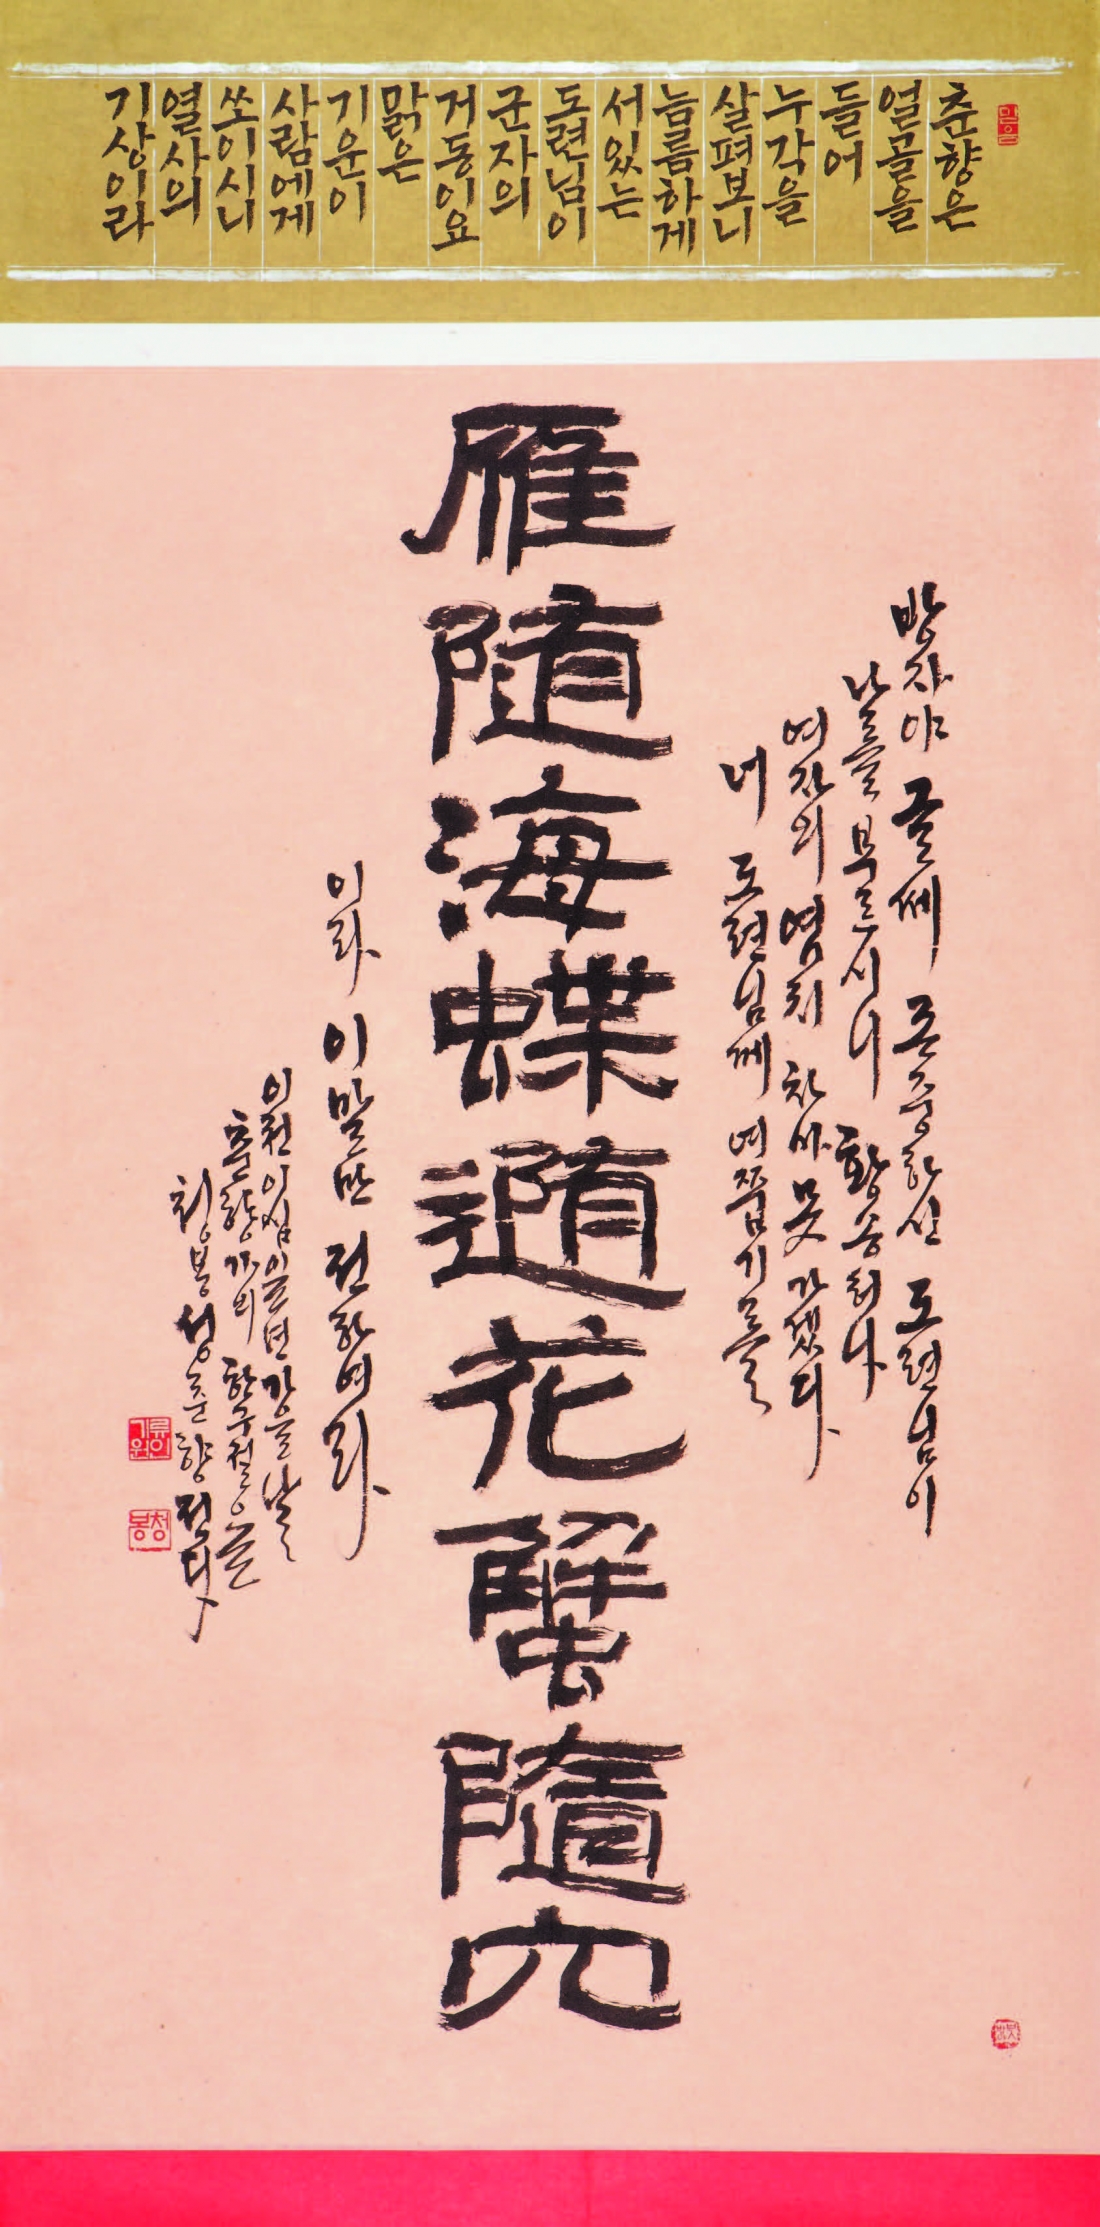 춘향은
얼골을
들어
누각을
살펴보니
늠름하게
서있는
도련님이
군자의
거동이요
맑은
기운이
사람에게
쏘이시니
열사의
기상이라
방자야 글쎄 존중하신 도련님이
나를 부르시니 황송허나
여자의 염치 차마 못 가겠다
너 도련님께 여쭙기를
雁随海蝶隨花蟹隨穴
이라 이 말만 전하여라
이천이십일년 가을날
춘향가의 한구절을
청봉 성춘향
청봉